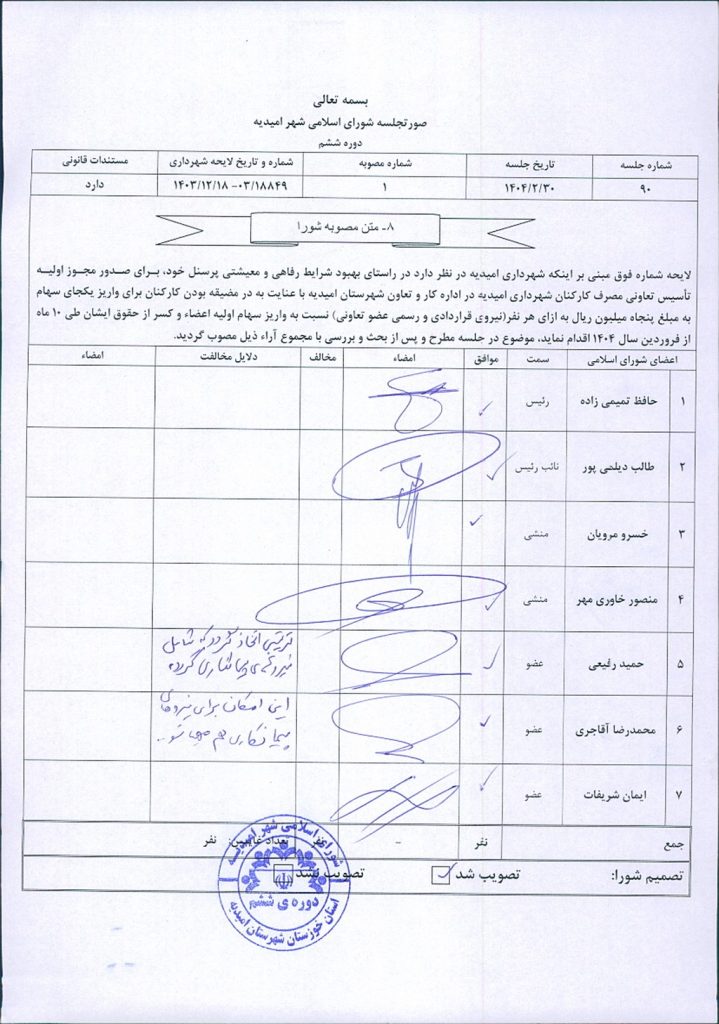 بسمه تعالی
صورتجلسه شورای اسلامی شهر امیدیه
دوره ششم
شماره جلسه تاریخ جلسه شماره مصوبه شماره و تاریخ لایحه شهرداری مستندات قانونی
۹۰ ۱۴۰۴/۲/۳۰ ۱ ۰۳/۱۸۸۴۹- ۱۴۰۳/۱۲/۱۸ دارد
۸- متن مصوبه شورا
لایحه شماره فوق مبنی بر اینکه شهرداری امیدیه در نظر دارد در راستای بهبود شرایط رفاهی و معیشتی پرسنل خود، برای صدور مجوز اولیه
تأسیس تعاونی مصرف کارکنان شهرداری امیدیه در اداره کار و تعاون شهرستان امیدیه با عنایت به در مضیقه بودن کارکنان برای واریز یکجای سهام
به مبلغ پنجاه میلیون ریال به ازای هر نفر(نیروی قراردادی و رسمی عضو تعاونی) نسبت به واریز سهام اولیه اعضاء و کسر از حقوق ایشان طی ۱۰ ماه
از فروردین سال ۱۴۰۴ اقدام نماید، موضوع در جلسه مطرح و پس از بحث و بررسی با مجموع آراء ذیل مصوب گردید.
اعضای شورای اسلامی سمت موافق امضاء مخالف دلایل مخالفت امضاء
۱ حافظ تمیمی زاده رئیس
۲ طالب دیلمی پور نائب رئیس
۳ خسرو مرویان منشی
۴ منصور خاوری مهر منشی
۵ حمید رفیعی عضو
ترتیبی اتخاذ گردد که شامل
نیروهای پیمانکاری گردد
۶ محمدرضا آقاجری عضو
این امکان برای نیروهای
پیمانکاری هم
۷ ایمان شریفات عضو
جمع نفر - نفر تعداد غایبین: نفر
تصمیم شورا: تصویب شد تصویب نشد
شورای اسلامی شهر امیدیه
دوره ی ششم
استان خوزستان شهرستان امیدیه